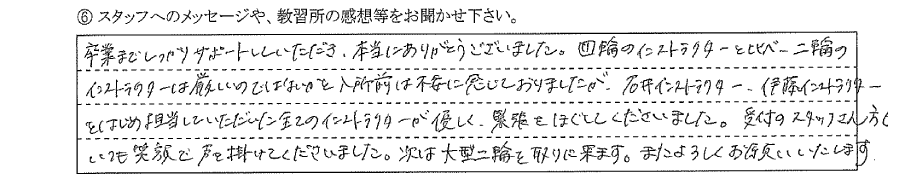 ⑥ スタッフへのメッセージや、教習所の感想等をお聞かせ下さい。
卒業までしっかりサポートしていただき、本当にありがとうございました。四輪のインストラクターと比べ二輪の
インストラクターは厳しいのではないかと入所前は不安に感じておりましたが、石井インストラクター、伊藤インストラクター
をはじめ担当していただいた全てのインストラクターが優しく、緊張をほぐしてくださいました。受付のスタッフさん方も
いつも笑顔で声を掛けてくださいました。次は大型二輪を取りに来ます。またよろしくお願いいたします。